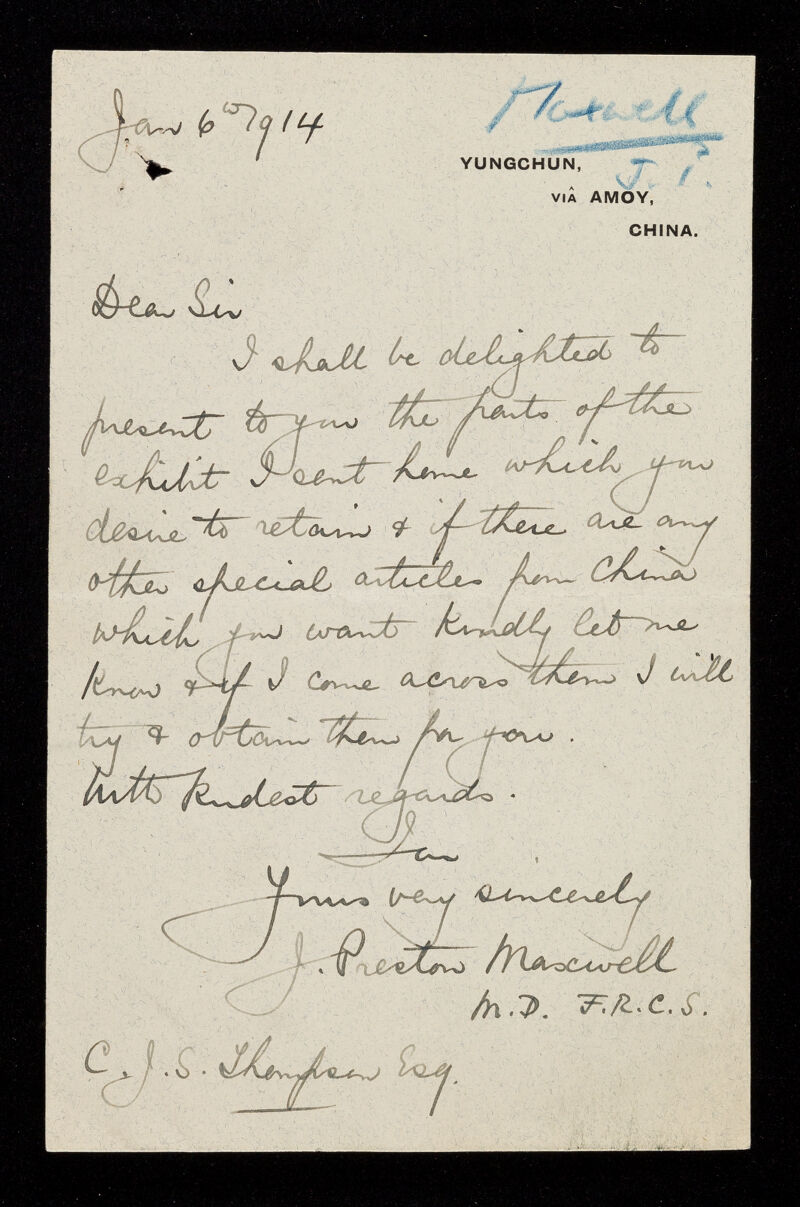 Jan 6th/914
Maxwell
J. P.
YUNGCHUN,
VIÂ AMOY,
CHINA.
Dear Sir
I shall be delighted to
present to you the parts of the
exhibit I sent home which you
desire to retain & if there are any
other special articles from China
which you want kindly let me
know & if I come across them I will
try & obtain them for you.
With kindest regards.
I am
Yours very sincerely
J. Preston Maxwell
M.D. F.R.C.S.
C. J. S. Thompson Esq.